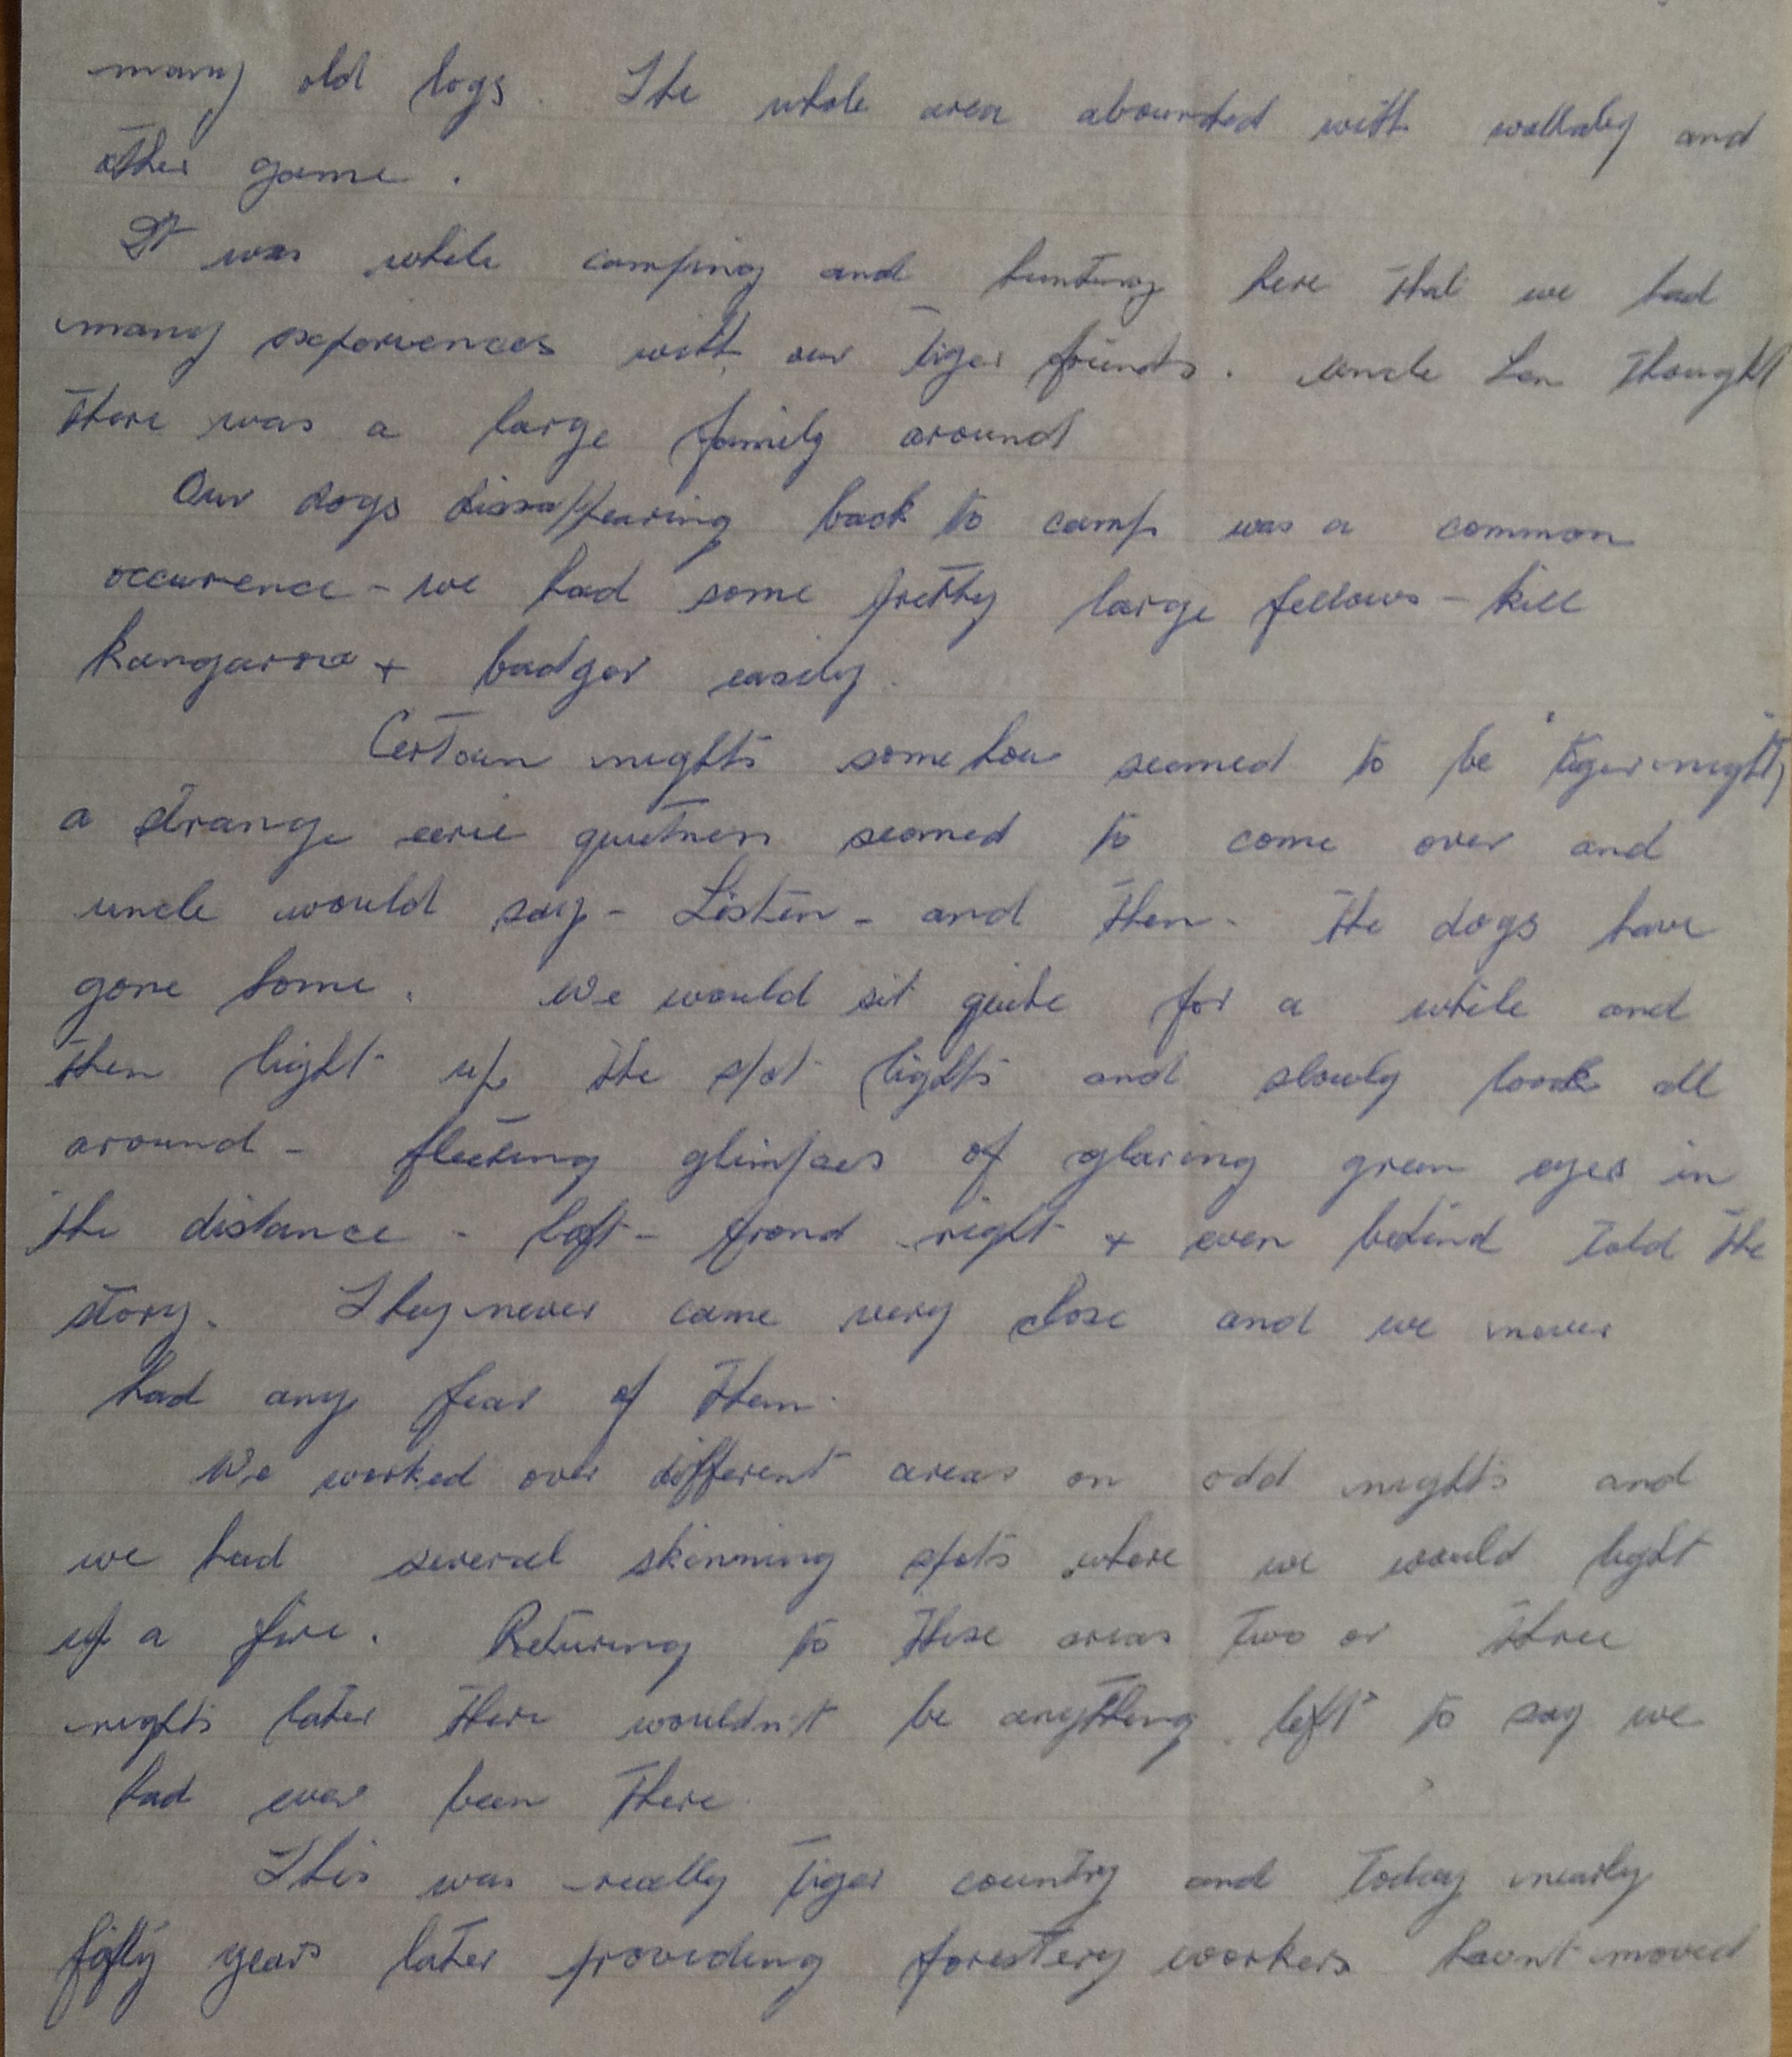 many old logs. The whole area abounded with wallaby and
other game.
It was while camping and hunting here that we had
many experiences with our tiger friends. Uncle Len thought
there was a large family around
Our dogs dissappearing back to camp was a common
occurence - we had some pretty large fellows - kill
kangaroo + badger easily.
Certain nights somehow seemed to be "tiger nights"
a strange eerie quietness seemed to come over and
uncle would say - Listen - and then - the dogs have
gone home. We would sit quite for a while and
then light up the spot lights and slowly look all
around - fleeting glimpses of glaring green eyes in
the distance - left - frond right + even behind told the
story. They never came very close and we never
had any fear of them.
We worked over different areas on odd nights and
we had several skinning spots where we would light
up a fire. Returing to these areas two or three
nights later there wouldn't be anything left to say we
had ever been there.
This was really tiger country and today nearly
fifty years later providing forestery workers havnt moved